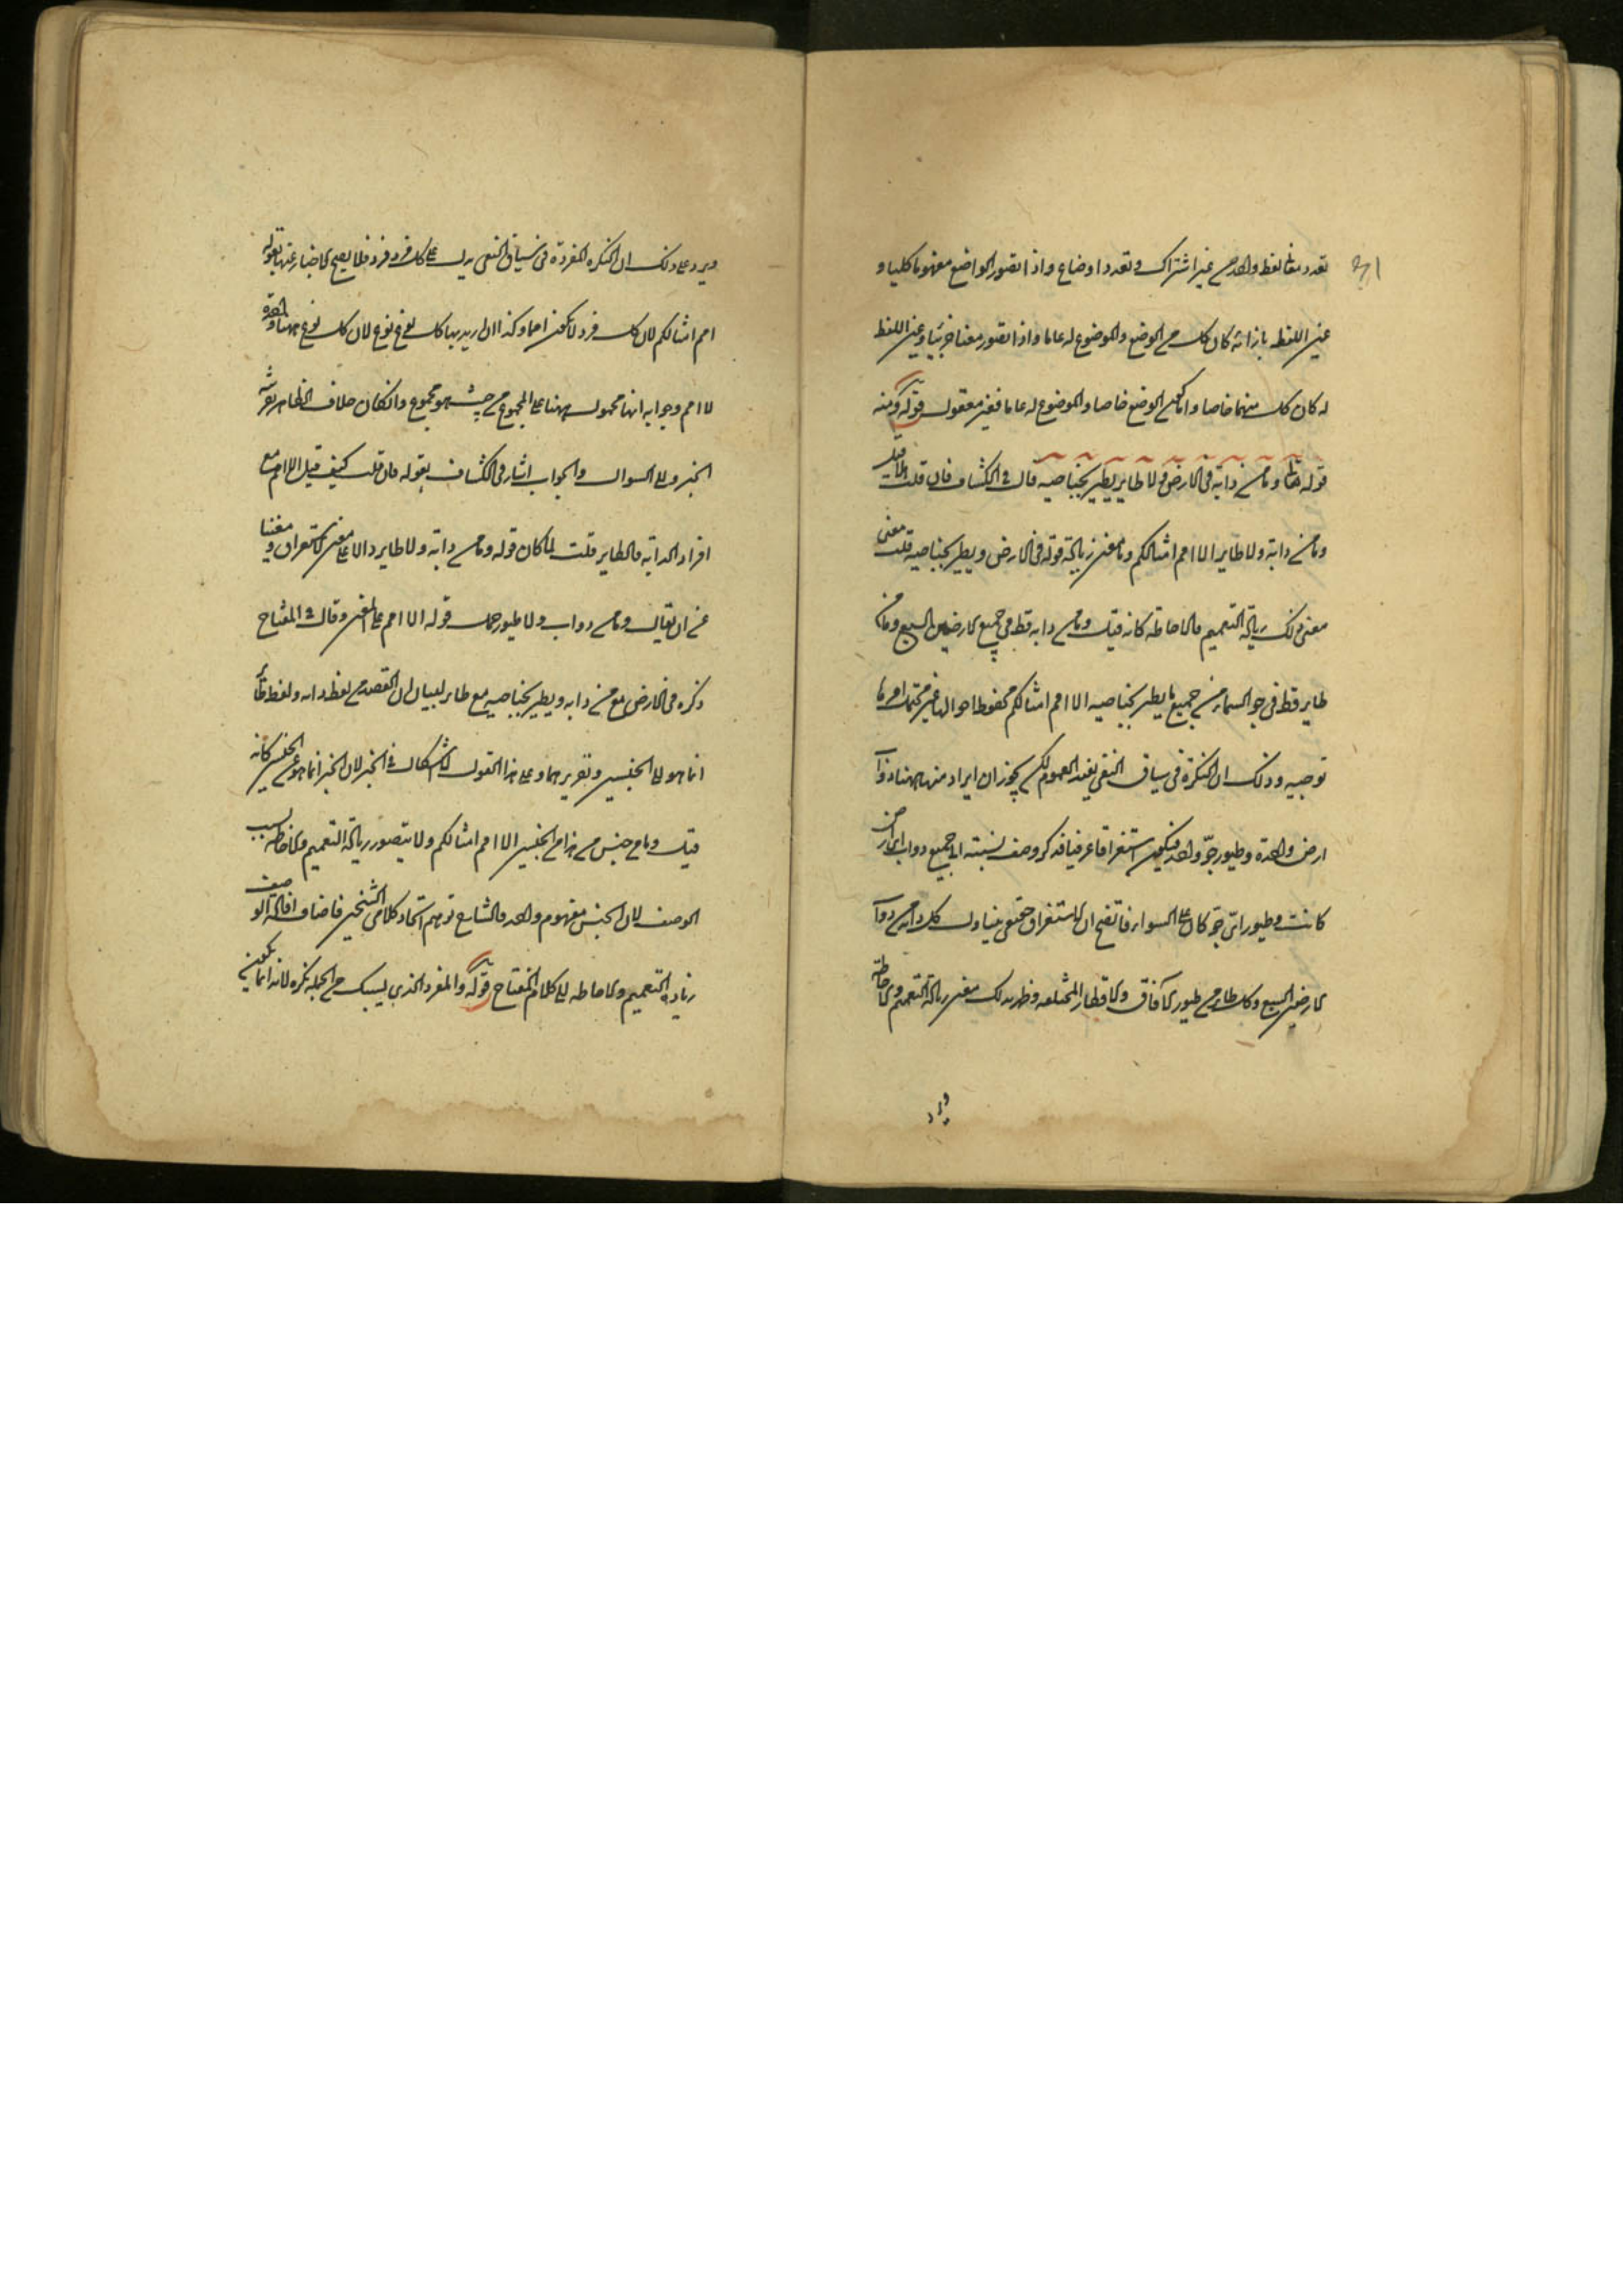 تعدد معنا لفظ واحد من غير اشتراك وتعدد اوضاع واذا تصور الواضع مفهوما كليا و
عين اللفظ بازائه كان كل من الوضع والموضوع له عاما واذا تصور معنا جزئيا وعين اللفظ
له كان كل منهما خاصا واما كون الوضع خاصا والموضوع له عاما فغير معقول قوله ومنه
قوله تعالى وما من دابة في الارض ولا طاير يطير بجناحيه قال في الكشاف فان قلت هلا قيل
وما من دابة ولا طاير الا امم امثالكم وما معنى زيادة قوله في الارض ويطير بجناحيه قلت معنى
معنى ذلك زيادة التعميم والاحاطة كانه قيل وما من دابه قط في جميع الارضين السبع وما من
طاير قط في جو السماء من جميع ما يطير بجناحيه الا امم امثالكم محفوظا احوالها غير مهمل امرها
توجيه وذلك ان النكرة في سياق النفي يفيد العموم لكن يجوز ان يراد منها ههنا دواب
ارض واحدة وطيور جو واحد فيكون استغراقا عرفيا فذكر وصف نسبته الى جميع دواب اي ارض
كانت وطيور اي جو كان على السواء فاتضح ان الاستغراق حقيقي يتناول كل دابة من دواب
الارضين السبع وكل طاير من طيور الآفاق والاقطار المختلفه وظهر بذلك معنى زيادة التعميم والاحاطة
ويرد
ويرد على ذلك ان النكرة المفردة في سياق النفي يدل على كل فرد فرد فلا يصح الاخبار عنها بقوله
امم امثالكم لان كل فرد لا يكون امما وكذا ان اريد بها كل نوع نوع لان كل نوع ههنا امة واحدة
لا امم وجوابه انها محمول ههنا على المجموع من حيث هو مجموع وان كان خلاف الظاهر بقرينة
الخبر والى السوال والجواب اشار في الكشاف بقوله فان قلت كيف قيل الا امم مع
افراد الدابة والطاير قلت لما كان قوله وما من دابة ولا طاير دالا على معنى الاستغراق ومغنيا
عن ان يقال وما من دواب ولا طيور حمل قوله الا امم على المعنى وقال في المفتاح
ذكر في الارض مع من دابه ويطير بجناحيه مع طاير لبيان ان القصد من لفظ دابه ولفظ طاير
انما هو الى الجنسين وتقريرهما وعلى هذا القول لا اشكال في الخبر لان الخبر انما هو عن الجنس كانه
قيل وما من جنس من هذين الجنسين الا امم امثالكم ولا يتصور زيادة التعميم والاحاطه بسبب
الوصف لان الجنس مفهوم واحد والشارح توهم اتحاد كلامي الشيخين فاضاف افادة الوصف
زياده التعميم والاحاطه الى كلام المفتاح قوله والمفرد الذي يسبك من الجمله نكره لانه انما يكون